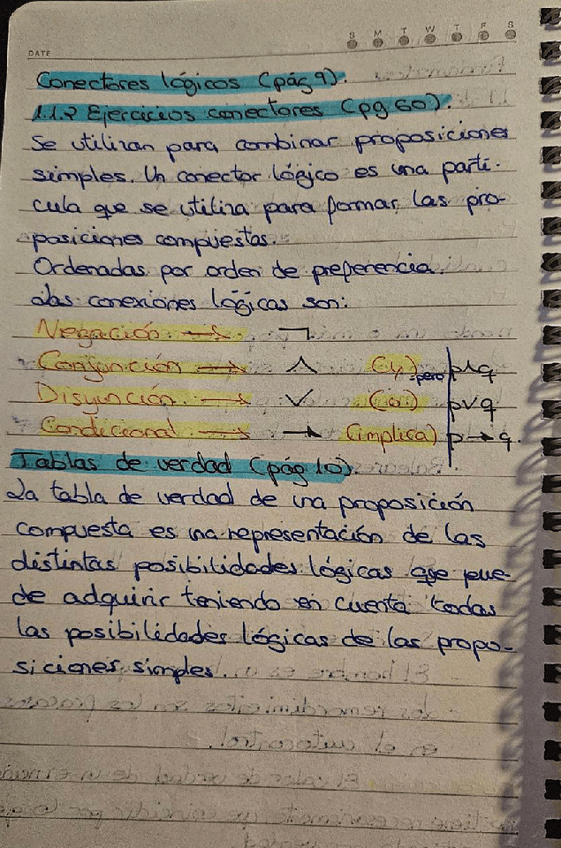 S M T W T F S
DATE
Conectores lógicos (pág 9).
1.1.2 Ejercicios conectores (pg 60).
Se utilizan para combinar proposiciones
simples. Un conector lógico es una partí-
cula que se utiliza para formar las pro-
posiciones compuestas.
Ordenadas por orden de preferencia
las conexiones lógicas son:
Negación → ¬
Conjunción → ∧ (y) pero p∧q
Disyunción → ∨ (o) p∨q
Condicional → → (implica) p→q.
Tablas de verdad (pág 10).
La tabla de verdad de una proposición
compuesta es una representación de las
distintas posibilidades lógicas que pue-
de adquirir teniendo en cuenta todas
las posibilidades lógicas de las propo-
siciones simples.